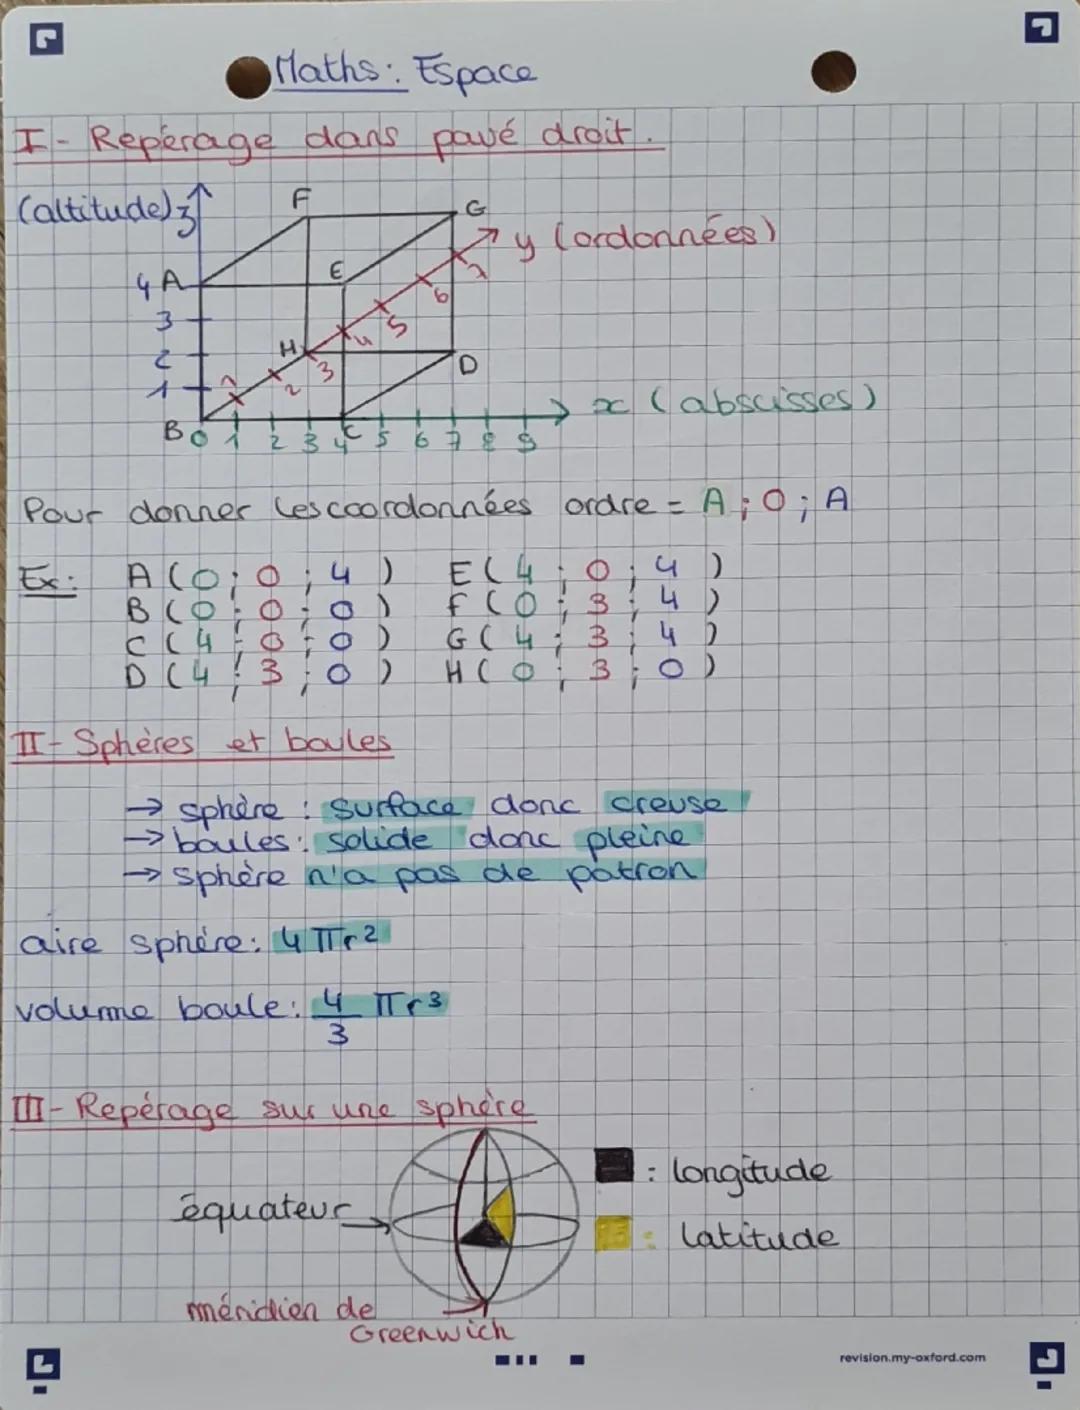 Maths : Espace
I - Repérage dans pavé droit.
(altitude) z
F
G
y (ordonnées)
4 A
E
7
6
3
5
4
2
H
3
D
1
1
2
x (abscisses)
B 0 1 2 3 4 C 5 6 7 8 9
Pour donner les coordonnées ordre = A ; O ; A
Ex : A ( 0 ; 0 ; 4 ) E ( 4 ; 0 ; 4 )
B ( 0 ; 0 ; 0 ) F ( 0 ; 3 ; 4 )
C ( 4 ; 0 ; 0 ) G ( 4 ; 3 ; 4 )
D ( 4 ; 3 ; 0 ) H ( 0 ; 3 ; 0 )
II - Sphères et boules
→ sphère : surface donc creuse
→ boules : solide donc pleine
→ sphère n'a pas de patron
aire sphère : 4 πr²
volume boule : 4/3 πr³
III - Repérage sur une sphère
: longitude
équateur
: latitude
méridien de
Greenwich
revision.my-oxford.com